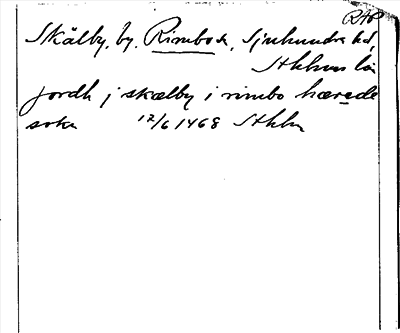 RAP
Skälby, by, Rimbo sn, Sjuhundra hd,
Sthlms län
jordh j skælby i rimbo hærede
sokn 12/6 1468 Sthlm